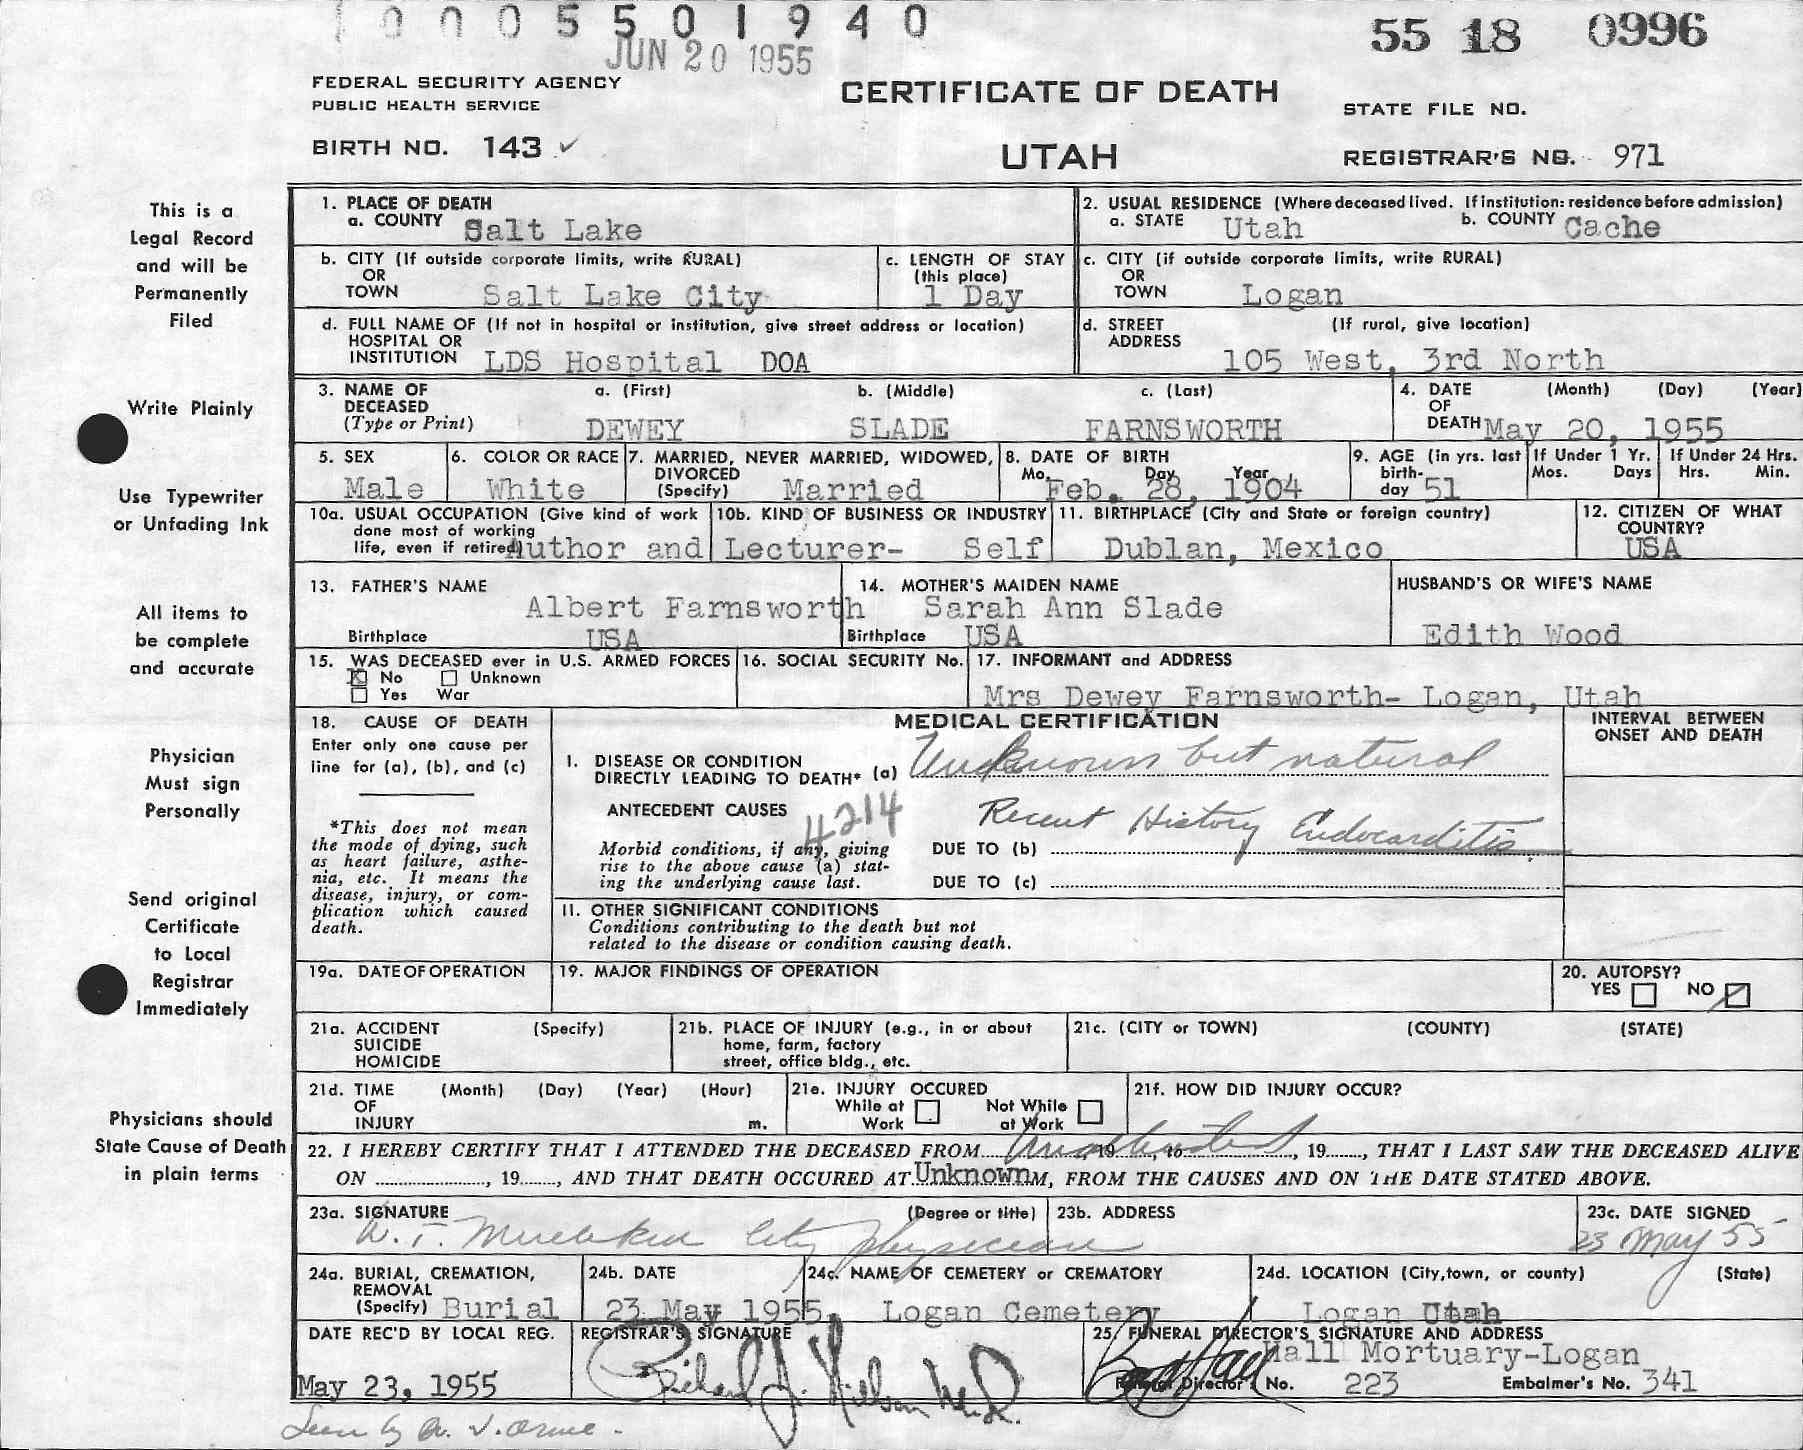 1 0 0 0 5 5 0 1 9 4 0
JUN 20 1955
55 18 0996
FEDERAL SECURITY AGENCY
PUBLIC HEALTH SERVICE
CERTIFICATE OF DEATH
STATE FILE NO.
BIRTH NO. 143 ✓
UTAH
REGISTRAR'S NO. 971
This is a
Legal Record
and will be
Permanently
Filed
Write Plainly
Use Typewriter
or Unfading Ink
All items to
be complete
and accurate
Physician
Must sign
Personally
Send original
Certificate
to Local
Registrar
Immediately
Physicians should
State Cause of Death
in plain terms
1. PLACE OF DEATH
a. COUNTY Salt Lake
2. USUAL RESIDENCE (Where deceased lived. If institution: residence before admission)
a. STATE Utah b. COUNTY Cache
b. CITY (If outside corporate limits, write RURAL)
OR
TOWN Salt Lake City
c. LENGTH OF STAY
(this place)
1 Day
c. CITY (if outside corporate limits, write RURAL)
OR
TOWN Logan
d. FULL NAME OF (If not in hospital or institution, give street address or location)
HOSPITAL OR
INSTITUTION LDS Hospital DOA
d. STREET (If rural, give location)
ADDRESS
105 West, 3rd North
3. NAME OF a. (First) b. (Middle) c. (Last)
DECEASED
(Type or Print) DEWEY SLADE FARNSWORTH
4. DATE (Month) (Day) (Year)
OF
DEATH May 20, 1955
5. SEX
Male
6. COLOR OR RACE
White
7. MARRIED, NEVER MARRIED, WIDOWED,
DIVORCED
(Specify) Married
8. DATE OF BIRTH
Mo. Day Year
Feb. 28, 1904
9. AGE (in yrs. last
birth-
day 51
If Under 1 Yr.
Mos. Days
If Under 24 Hrs.
Hrs. Min.
10a. USUAL OCCUPATION (Give kind of work
done most of working
life, even if retired) Author and
10b. KIND OF BUSINESS OR INDUSTRY
Lecturer- Self
11. BIRTHPLACE (City and State or foreign country)
Dublan, Mexico
12. CITIZEN OF WHAT
COUNTRY?
USA
13. FATHER'S NAME
Albert Farnsworth
Birthplace USA
14. MOTHER'S MAIDEN NAME
Sarah Ann Slade
Birthplace USA
HUSBAND'S OR WIFE'S NAME
Edith Wood
15. WAS DECEASED ever in U.S. ARMED FORCES
☒ No ☐ Unknown
☐ Yes War
16. SOCIAL SECURITY No.
17. INFORMANT and ADDRESS
Mrs Dewey Farnsworth- Logan, Utah
18. CAUSE OF DEATH
Enter only one cause per
line for (a), (b), and (c)
*This does not mean
the mode of dying, such
as heart failure, asthe-
nia, etc. It means the
disease, injury, or com-
plication which caused
death.
MEDICAL CERTIFICATION
INTERVAL BETWEEN
ONSET AND DEATH
I. DISEASE OR CONDITION
DIRECTLY LEADING TO DEATH* (a) Unknown but natural
ANTECEDENT CAUSES
4214
Recent History Endocarditis
Morbid conditions, if any, giving
rise to the above cause (a) stat-
ing the underlying cause last.
DUE TO (b)
DUE TO (c)
II. OTHER SIGNIFICANT CONDITIONS
Conditions contributing to the death but not
related to the disease or condition causing death.
19a. DATE OF OPERATION
19. MAJOR FINDINGS OF OPERATION
20. AUTOPSY?
YES ☐ NO ☑
21a. ACCIDENT (Specify)
SUICIDE
HOMICIDE
21b. PLACE OF INJURY (e.g., in or about
home, farm, factory
street, office bldg., etc.
21c. (CITY or TOWN) (COUNTY) (STATE)
21d. TIME (Month) (Day) (Year) (Hour)
OF
INJURY m.
21e. INJURY OCCURED
While at Work ☐ Not While at Work ☐
21f. HOW DID INJURY OCCUR?
22. I HEREBY CERTIFY THAT I ATTENDED THE DECEASED FROM Unattended 19, to, 19, THAT I LAST SAW THE DECEASED ALIVE
ON, 19, AND THAT DEATH OCCURED AT Unknown M, FROM THE CAUSES AND ON THE DATE STATED ABOVE.
23a. SIGNATURE (Degree or title)
W. T. City physician
23b. ADDRESS
23c. DATE SIGNED
23 May 55
24a. BURIAL, CREMATION,
REMOVAL
(Specify) Burial
24b. DATE
23 May 1955,
24c. NAME OF CEMETERY or CREMATORY
Logan Cemetery
24d. LOCATION (City, town, or county) (State)
Logan Utah
DATE REC'D BY LOCAL REG.
May 23, 1955
REGISTRAR'S SIGNATURE
Richard J. Nielson M.D.
25. FUNERAL DIRECTOR'S SIGNATURE AND ADDRESS
Hall Mortuary-Logan
Funeral Director's No. 223 Embalmer's No. 341
Seen by